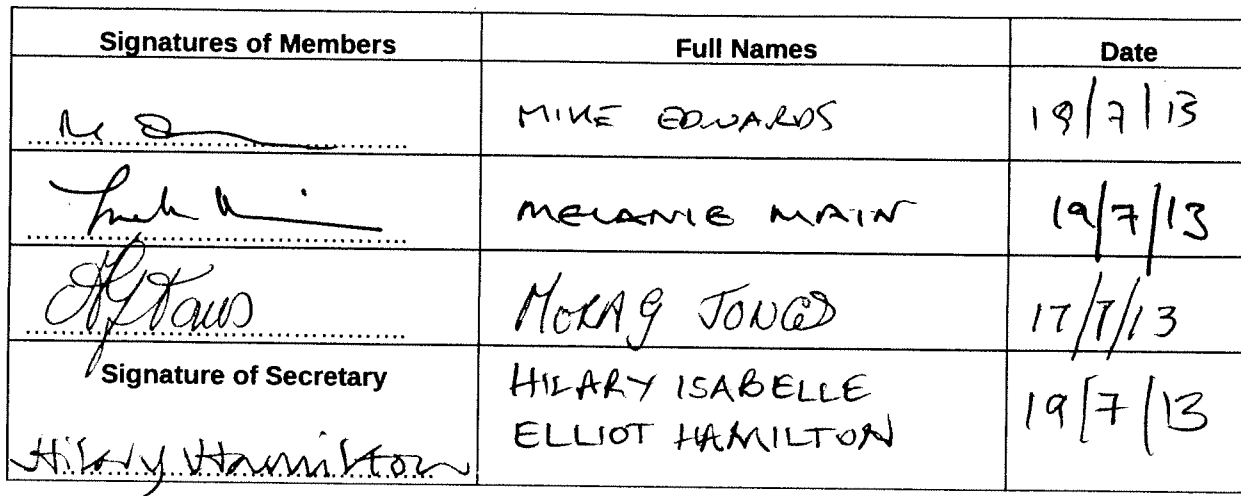 Signatures of Members Full Names Date
MIKE EDWARDS 19/7/13
MELANIE MAIN 19/7/13
MORAG JONES 17/7/13
Signature of Secretary
HILARY ISABELLE
ELLIOT HAMILTON 19/7/13
Hilary Hamilton